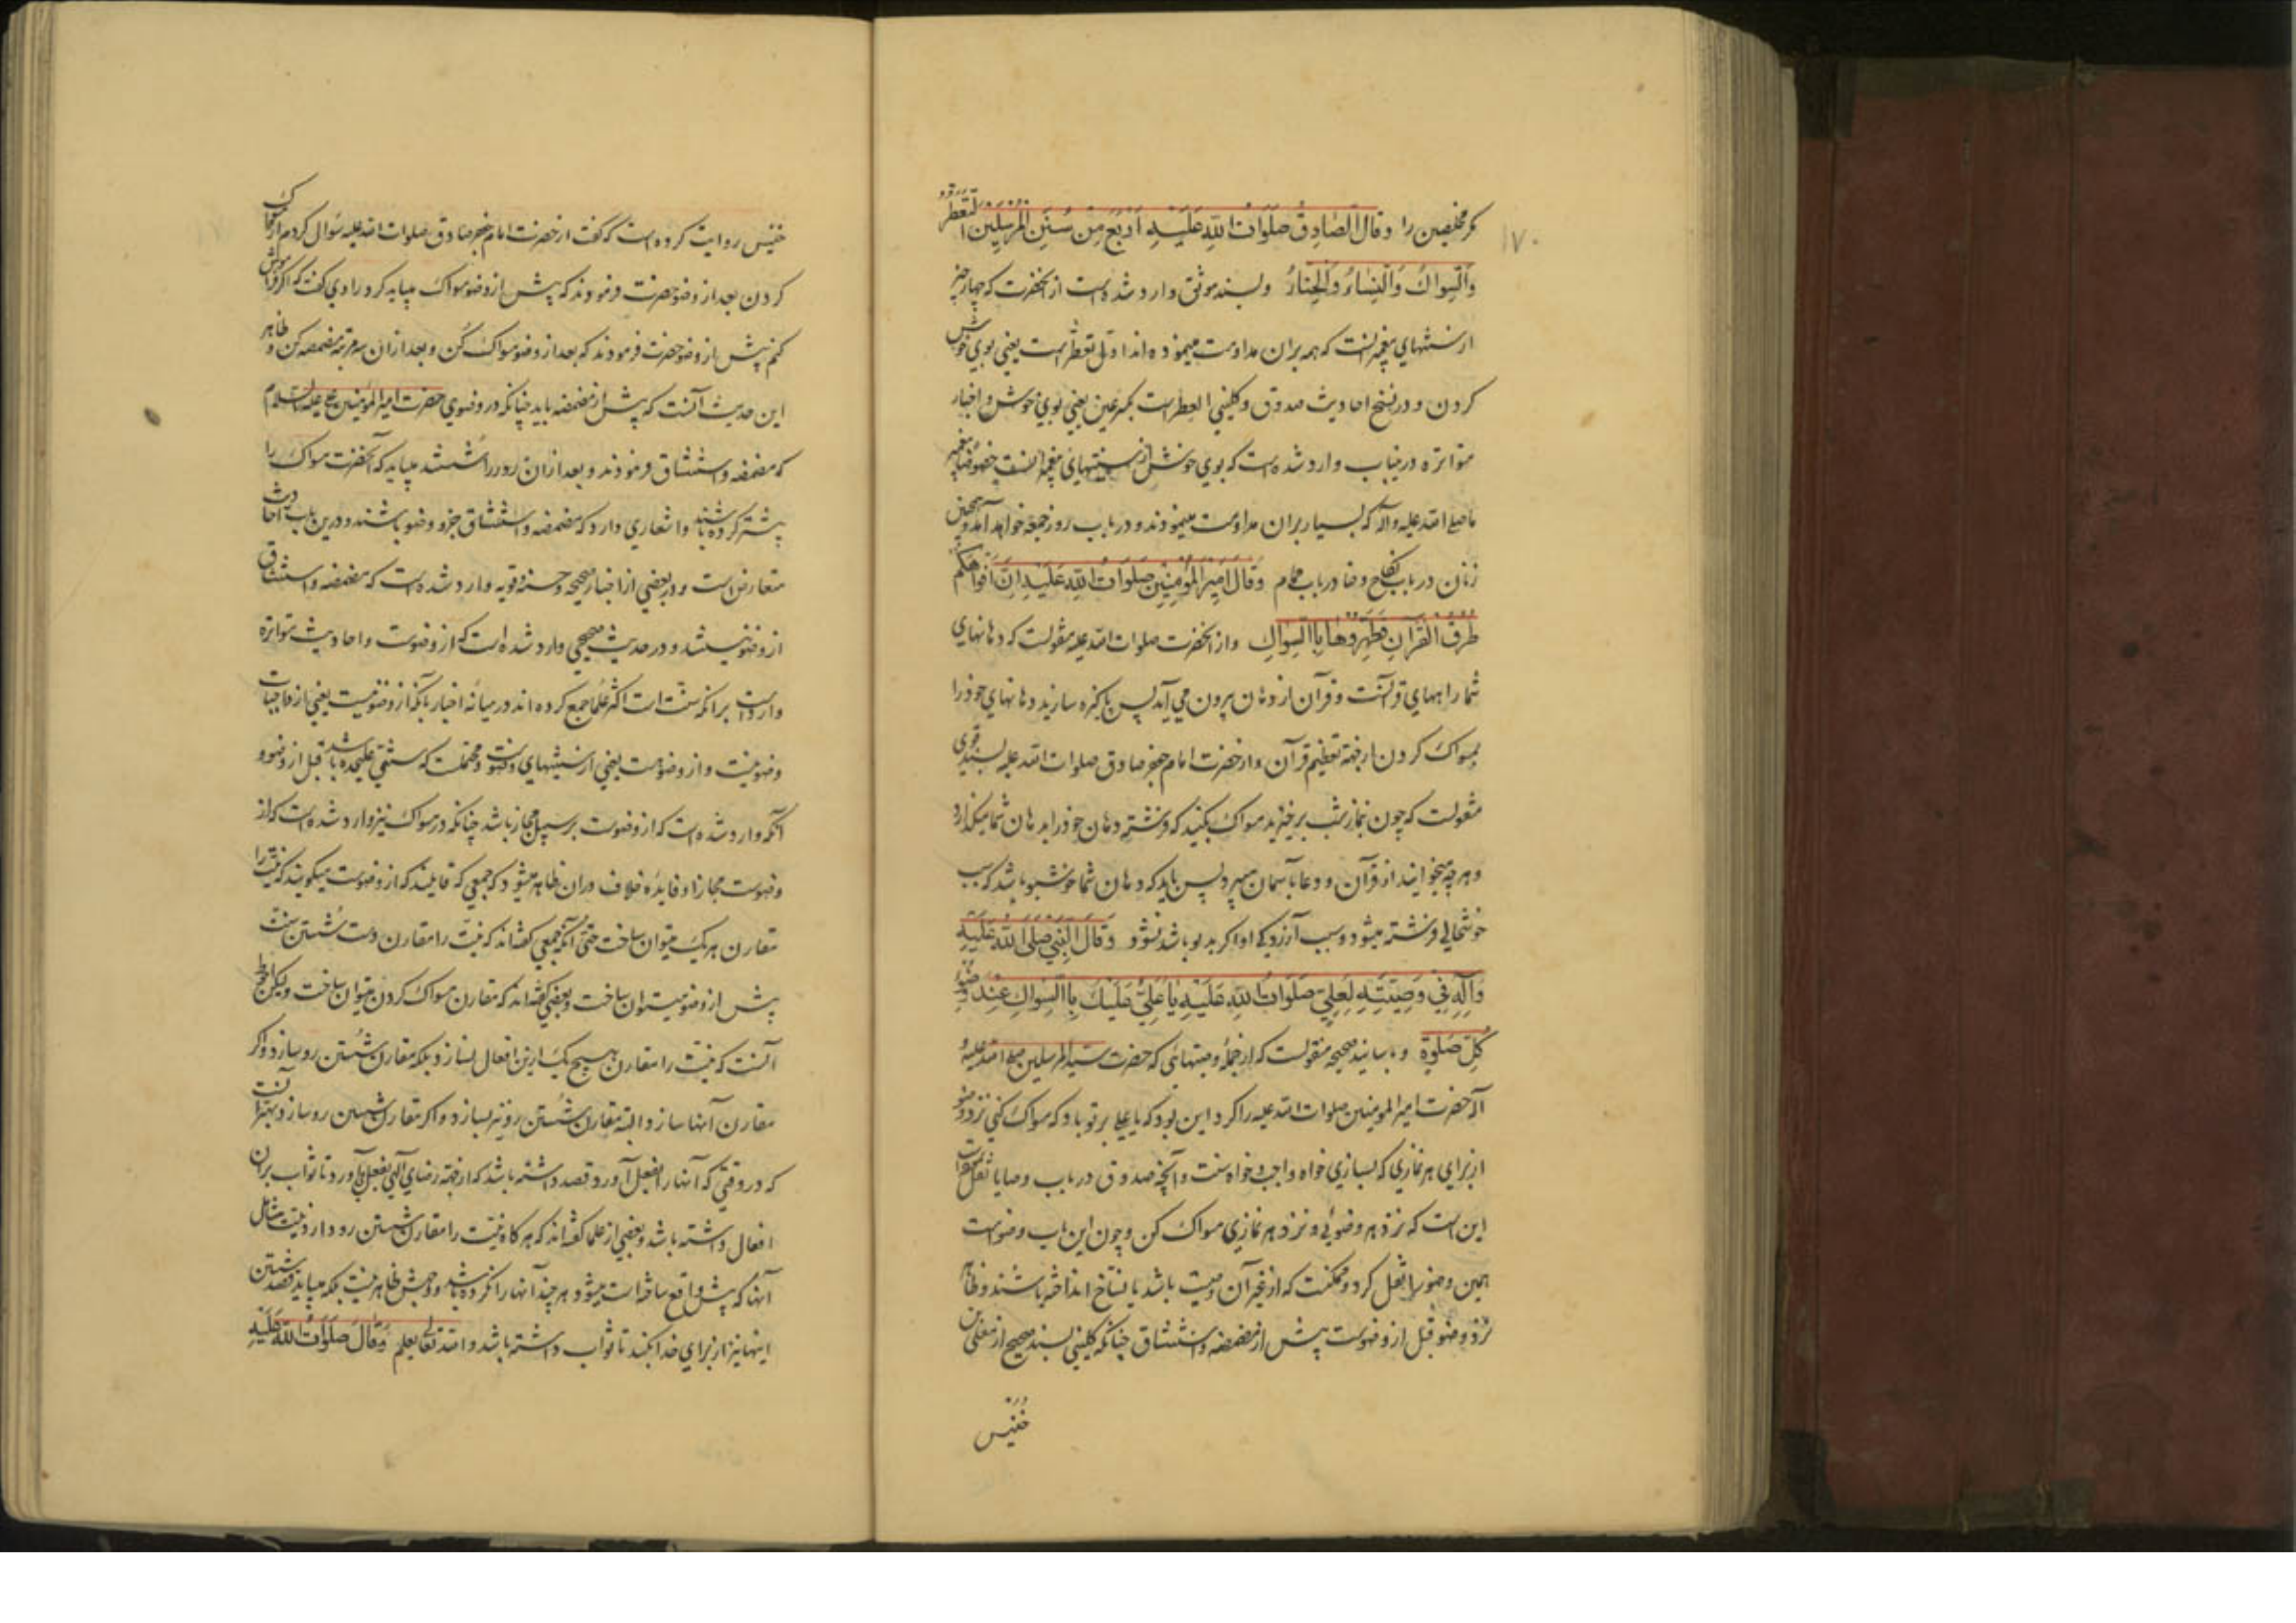 ١٧٠
مگر مخلصین را وقال الصّادِقُ صَلَواتُ اللهِ عَلَیْهِ اَرْبَعٌ مِنْ سُنَنِ المُرْسَلینَ التَّعَطُّرُ
وَالسِّواكُ وَالنِّساءُ وَالحِنّاءُ وبسند موثق وارد شده است از آنحضرت که چهار چیز
از سنتهای پیغمبرانست که همه بران مداومت مینموده اند اول تعطّر است یعنی بوی خوش
کردن و در نسخ احادیث صدوق و کلینی العطر است بکسر عین یعنی بوی خوش و اخبار
متواتره درینباب وارد شده است که بوی خوش از سنتهای پیغمبرانست خصوصا پیغمبر
ما صلی الله علیه وآله که بسیار بران مداومت مینمودند و در باب روز جمعه خواهد آمد و همچنین
زنان در باب نکاح و حنا در باب حمام وَقالَ اَمیرُ المُؤْمِنینَ صَلَواتُ اللهِ عَلَیْهِ اِنَّ اَفْواهَکُمْ
طُرُقُ القُرْآنِ فَطَهِّرُوها بِالسِّواكِ واز آنحضرت صلوات الله علیه منقولست که دهانهای
شما راههای قرآنست وقرآن از دهان بیرون می آید پس پاکیزه سازید دهانهای خود را
بمسواك کردن از جهة تعظیم قرآن واز حضرت امام جعفر صادق صلوات الله علیه بسند قوی
منقولست که چون بنماز شب برخیزید مسواك بکنید که فرشته دهان خود را بر دهان شما میگذارد
وهر چه میخوانید از قرآن و دعا بآسمان میبرد پس باید که دهان شما خوشبو باشد که سبب
خوشحالی فرشته میشود و سبب آزردگی او اگر بدبو باشد نشود وَقالَ النَّبیُّ صَلَّی اللهُ عَلَیْهِ
وَآلِهِ فی وَصِیَّتِهِ لِعَلِیٍّ صَلَواتُ اللهِ عَلَیْهِ یا عَلِیُّ عَلَیْكَ بِالسِّواكِ عِنْدَ وُضُوءِ
کُلِّ صَلوةٍ و باسانید صحیحه منقولست که از جملهٔ وصیتهائی که حضرت سید المرسلین صلی الله علیه و
آله حضرت امیر المومنین صلوات الله علیه را کرد این بود که یا علی بر تو باد که مسواك کنی نزد وضو
از برای هر نمازی که بسازی خواه واجب و خواه سنت وآنچه صدوق در باب وصایا نقل کرده است
این است که نزد هر وضوئی و نزد هر نمازی مسواك کن وچون این باب وضوست
همین وضو را نقل کرد وممکنست که از غیر آن وصیت باشد یا نساخ انداخته باشند وظاهر
نزد وضو قبل از وضوست پیش از مضمضه و استنشاق چنانکه کلینی بسند صحیح از معلی بن
خُنَیْس
خنیس روایت کرده است که گفت از حضرت امام جعفر صادق صلوات الله علیه سؤال کردم از مسواك
کردن بعد از وضو حضرت فرمودند که پیش از وضو مسواك میباید کرد راوی گفت که اگر فراموش
کنم پیش از وضو حضرت فرمودند که بعد از وضو مسواك کن و بعد ازان سه مرتبه مضمضه کن و ظاهر
این حدیث آنست که پیش از مضمضه باید چنانکه در وضوی حضرت امیر المؤمنین علی علیه السلام
که مضمضه و استنشاق فرمودند و بعد ازان رو را شستند میباید که آنحضرت مسواك را
پیشتر کرده باشند واشعاری دارد که مضمضه و استنشاق جزو وضو باشند ودرین باب احادیث
متعارض است و در بعضی از اخبار صحیحه وحسنه وقویه وارد شده است که مضمضه و استنشاق
از وضو نیستند و در حدیث صحیحی وارد شده است که از وضوست واحادیث متواتره
وارد است برانکه سنّت است اکثر علما جمع کرده اند در میانهٔ اخبار بآنکه از وضو نیست یعنی از واجبات
وضو نیست و از وضوست یعنی از سنتهای وضوست و محتملست که سنتی علیحده باشد قبل از وضو و
آنکه وارد شده است که از وضوست بر سبیل مجاز باشد چنانکه در مسواك نیز وارد شده است که از
وضوست مجازا وفایدهٔ خلاف دران ظاهر میشود که جمعی که قایلند که از وضوست میگویند که نیّت را
مقارن هر یك میتوان ساخت حتی آنکه جمعی گفته اند که نیّت را مقارن دست شستن سنت
پیش از وضو میتوان ساخت وبعضی گفته اند که مقارن مسواك کردن میتوان ساخت ولیکن احوط
آنست که نیّت را مقارن هیچ یك ازین افعال نسازد بلکه مقارن شستن رو سازد واگر
مقارن آنها سازد البته مقارن شستن رو نیز بسازد واگر مقارن شستن رو سازد بهتر آنست
که در وقتی که آنها را بفعل آورد قصد داشته باشد که از جهة رضای آلهی بفعل می آورد تا ثواب بران
افعال داشته باشد وبعضی از علما گفته اند که هر گاه نیّت را مقارن شستن رو دارد نیت شامل
آنها که پیش واقع ساخته است میشود هر چند آنها را نکرده باشد ووجهش ظاهر نیست بلکه میباید قصد شستن
اینها نیز از برای خدا بکند تا ثواب داشته باشد والله تعالی یعلم وَقالَ صَلَواتُ اللهِ عَلَیْهِ